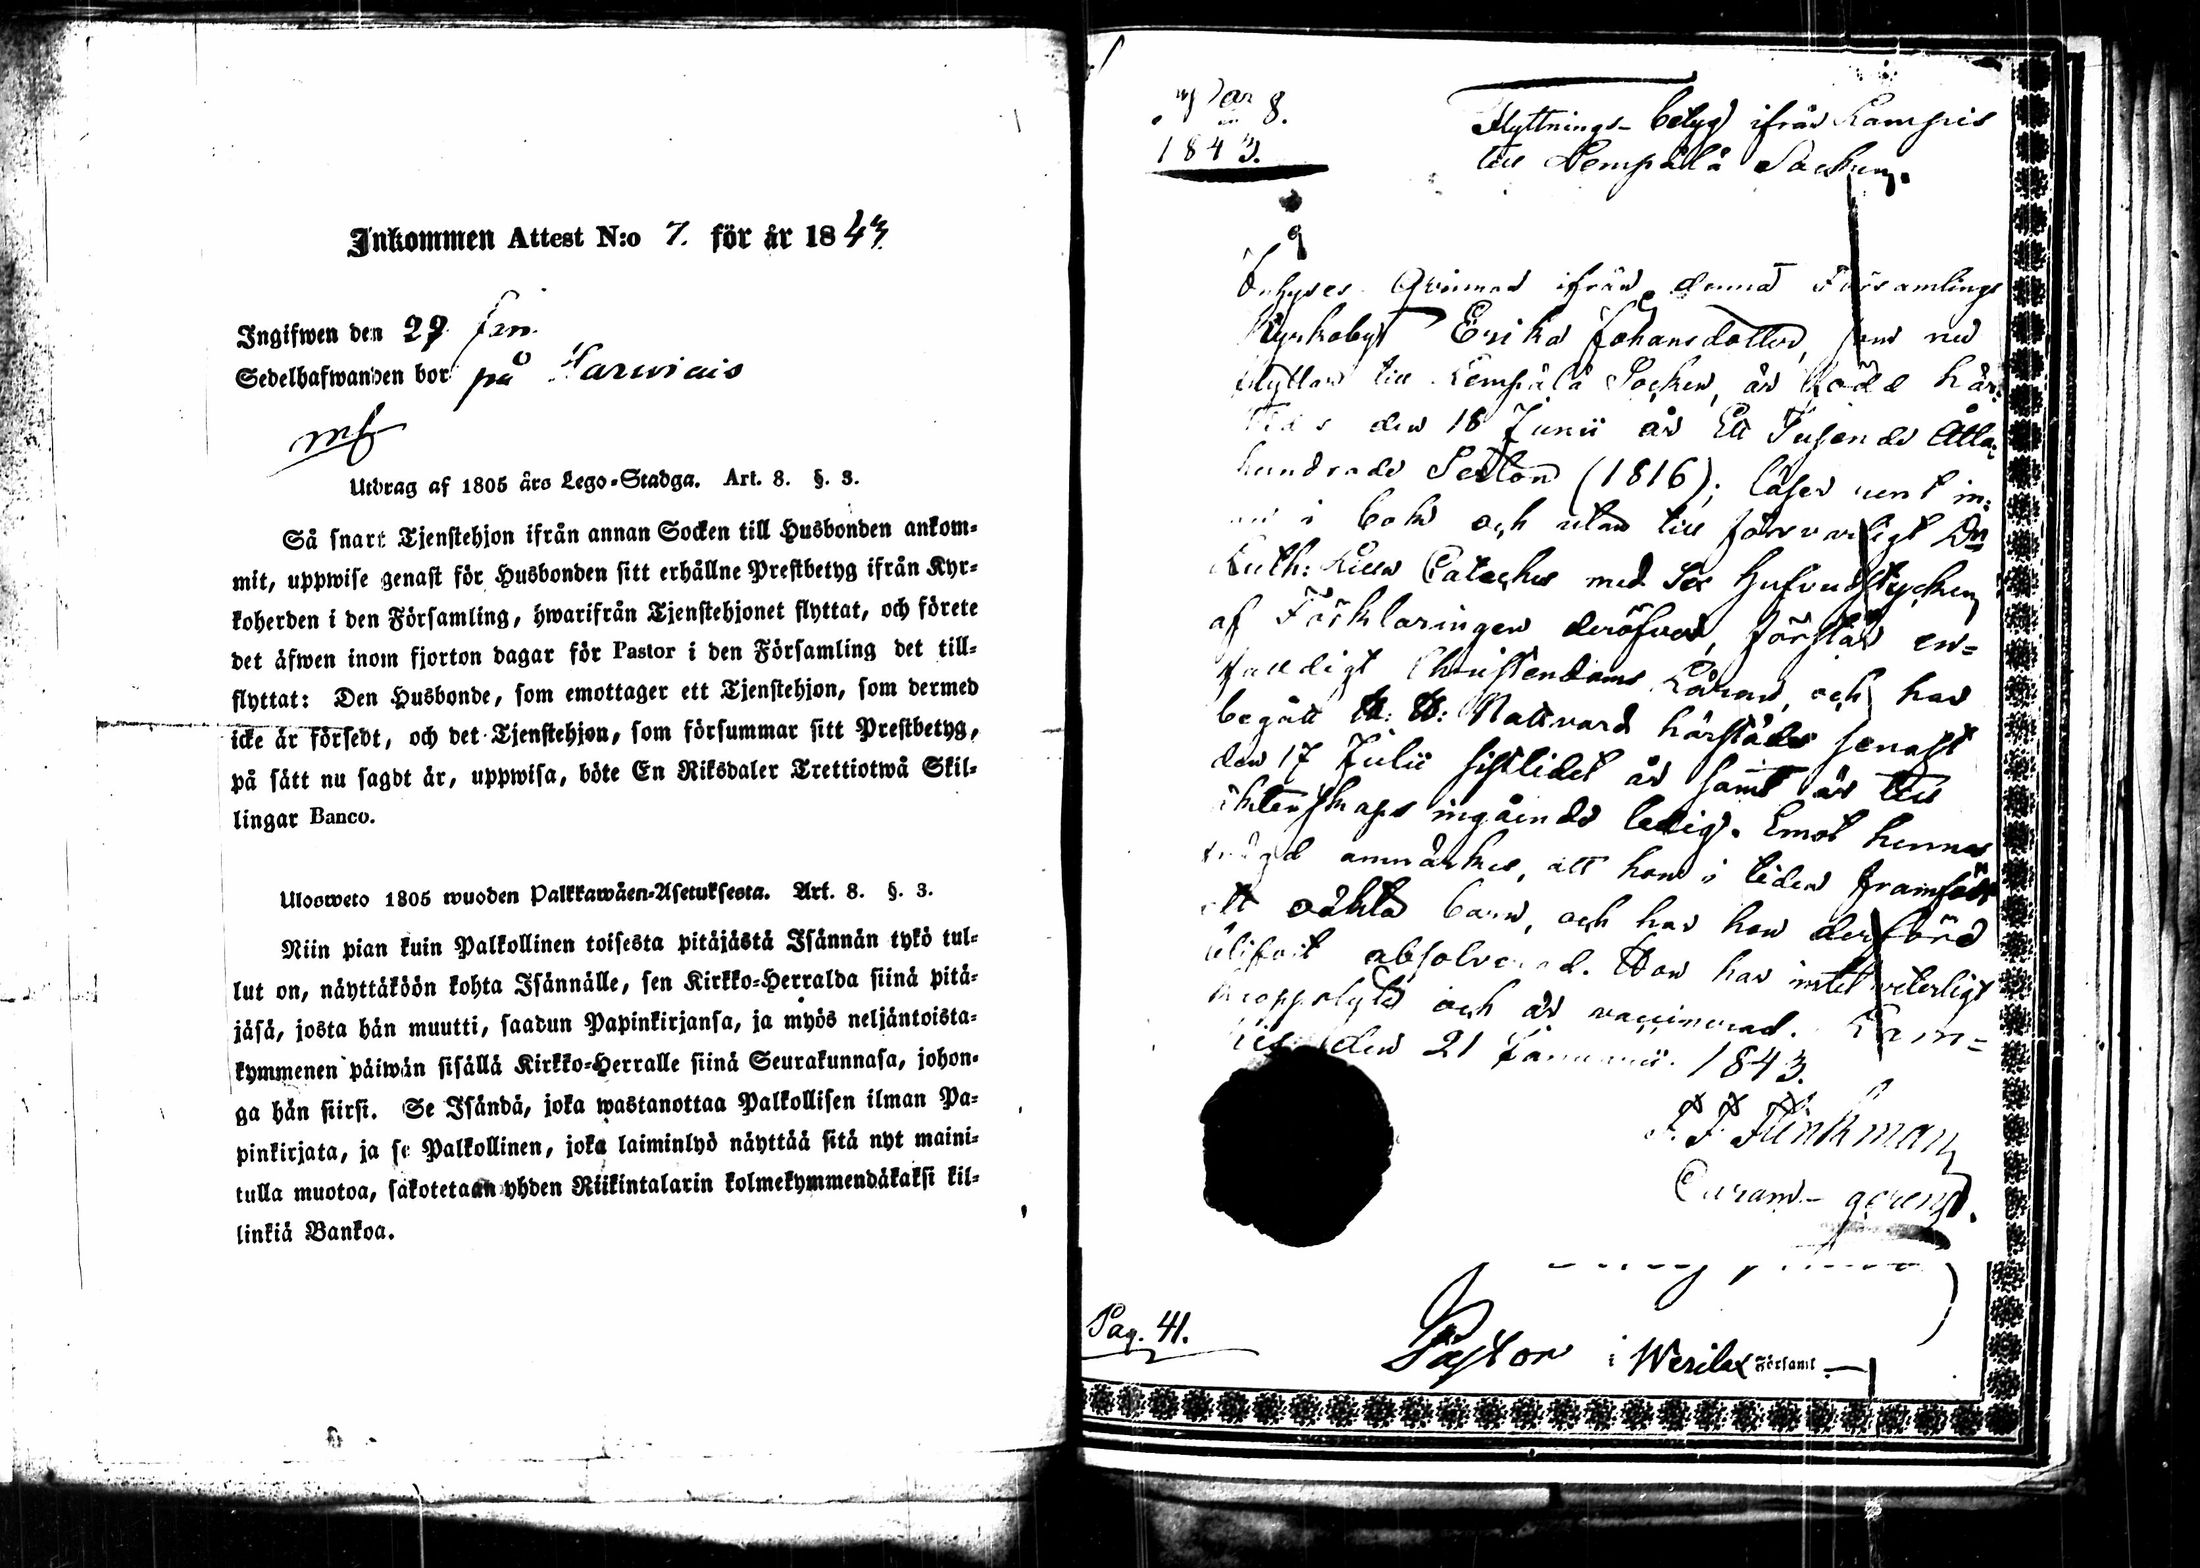 Inkommen Attest N:o 7. för år 1843.
Ingifwen den 29 Jan.
Sedelhafwanden bor på Harwiais
Utdrag af 1805 års Lego-Stadga. Art. 8. §. 3.
Så snart Tjenstehjon ifrån annan Socken till Husbonden ankom-
mit, uppwise genast för Husbonden sitt erhållne Prestbetyg ifrån Kyr-
koherden i den Församling, hwarifrån Tjenstehjonet flyttat, och förete
det äfwen inom fjorton dagar för Pastor i den Församling det till-
flyttat: Den Husbonde, som emottager ett Tjenstehjon, som dermed
icke är försedt, och det Tjenstehjon, som försummar sitt Prestbetyg,
på sätt nu sagdt är, uppwisa, böte En Riksdaler Trettiotwå Skil-
lingar Banco.
Ulosweto 1805 wuoden Palkkawäen-Asetuksesta. Art. 8. §. 3.
Niin pian kuin Palkollinen toisesta pitäjästä Isännän tykö tul-
lut on, näyttäköön kohta Isännälle, sen Kirkko-Herralda siinä pitä-
jäsä, josta hän muutti, saadun Papinkirjansa, ja myös neljäntoista-
kymmenen päiwän sisällä Kirkko-Herralle siinä Seurakunnasa, johon-
ga hän siirsi. Se Isändä, joka wastanottaa Palkollisen ilman Pa-
pinkirjata, ja se Palkollinen, joka laiminlyö näyttää sitä nyt maini-
tulla muotoa, sakotetaan yhden Riikintalarin kolmekymmendäkaksi kil-
linkiä Bankoa.
8.
1843.
Flyttnings-betyg ifrån Lampis
till Lempälä Socken.
Inhyses Qvinnan ifrån denna Församlings
Kyrkoby Erika Johansdotter, som nu
flyttar till Lempälä Socken, är född här-
städs den 18 Junii år Ett Tusende Åtta-
hundrade Sexton (1816); läser rent in-
i bok och utan till försvarligt Dr
Luth: Lilla Cateches med Sex hufvudstycken
af Förklaringen deröfver, förstår en-
faldigt Christendoms Läran, och har
begått H. H: Nattvard härstädes senast
den 17 Julii sistlidet år samt är till
äktenskaps ingående ledig. Emot hennes
anmärkes, att hon i tiden framfödt
ett oäkta barn, och har hon derföre
blifvit absolverad. Hon har intet veterligt
kroppslyte och är vaccinerad. Lam-
pis den 21 Januarii 1843.
F. F. Flinkman
Curam gerens.
Pag. 41.
Pastor i Wesilax Församl